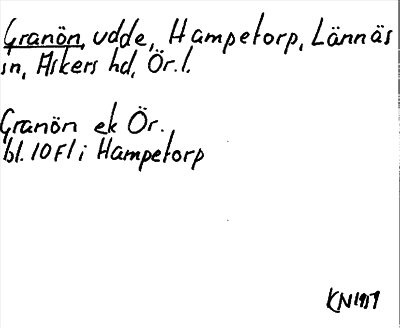 Granön, udde, Hampetorp, Lännäs
sn, Askers hd, Ör. l.
Granön ek Ör.
bl. 10 Fl i Hampetorp
KN 1957